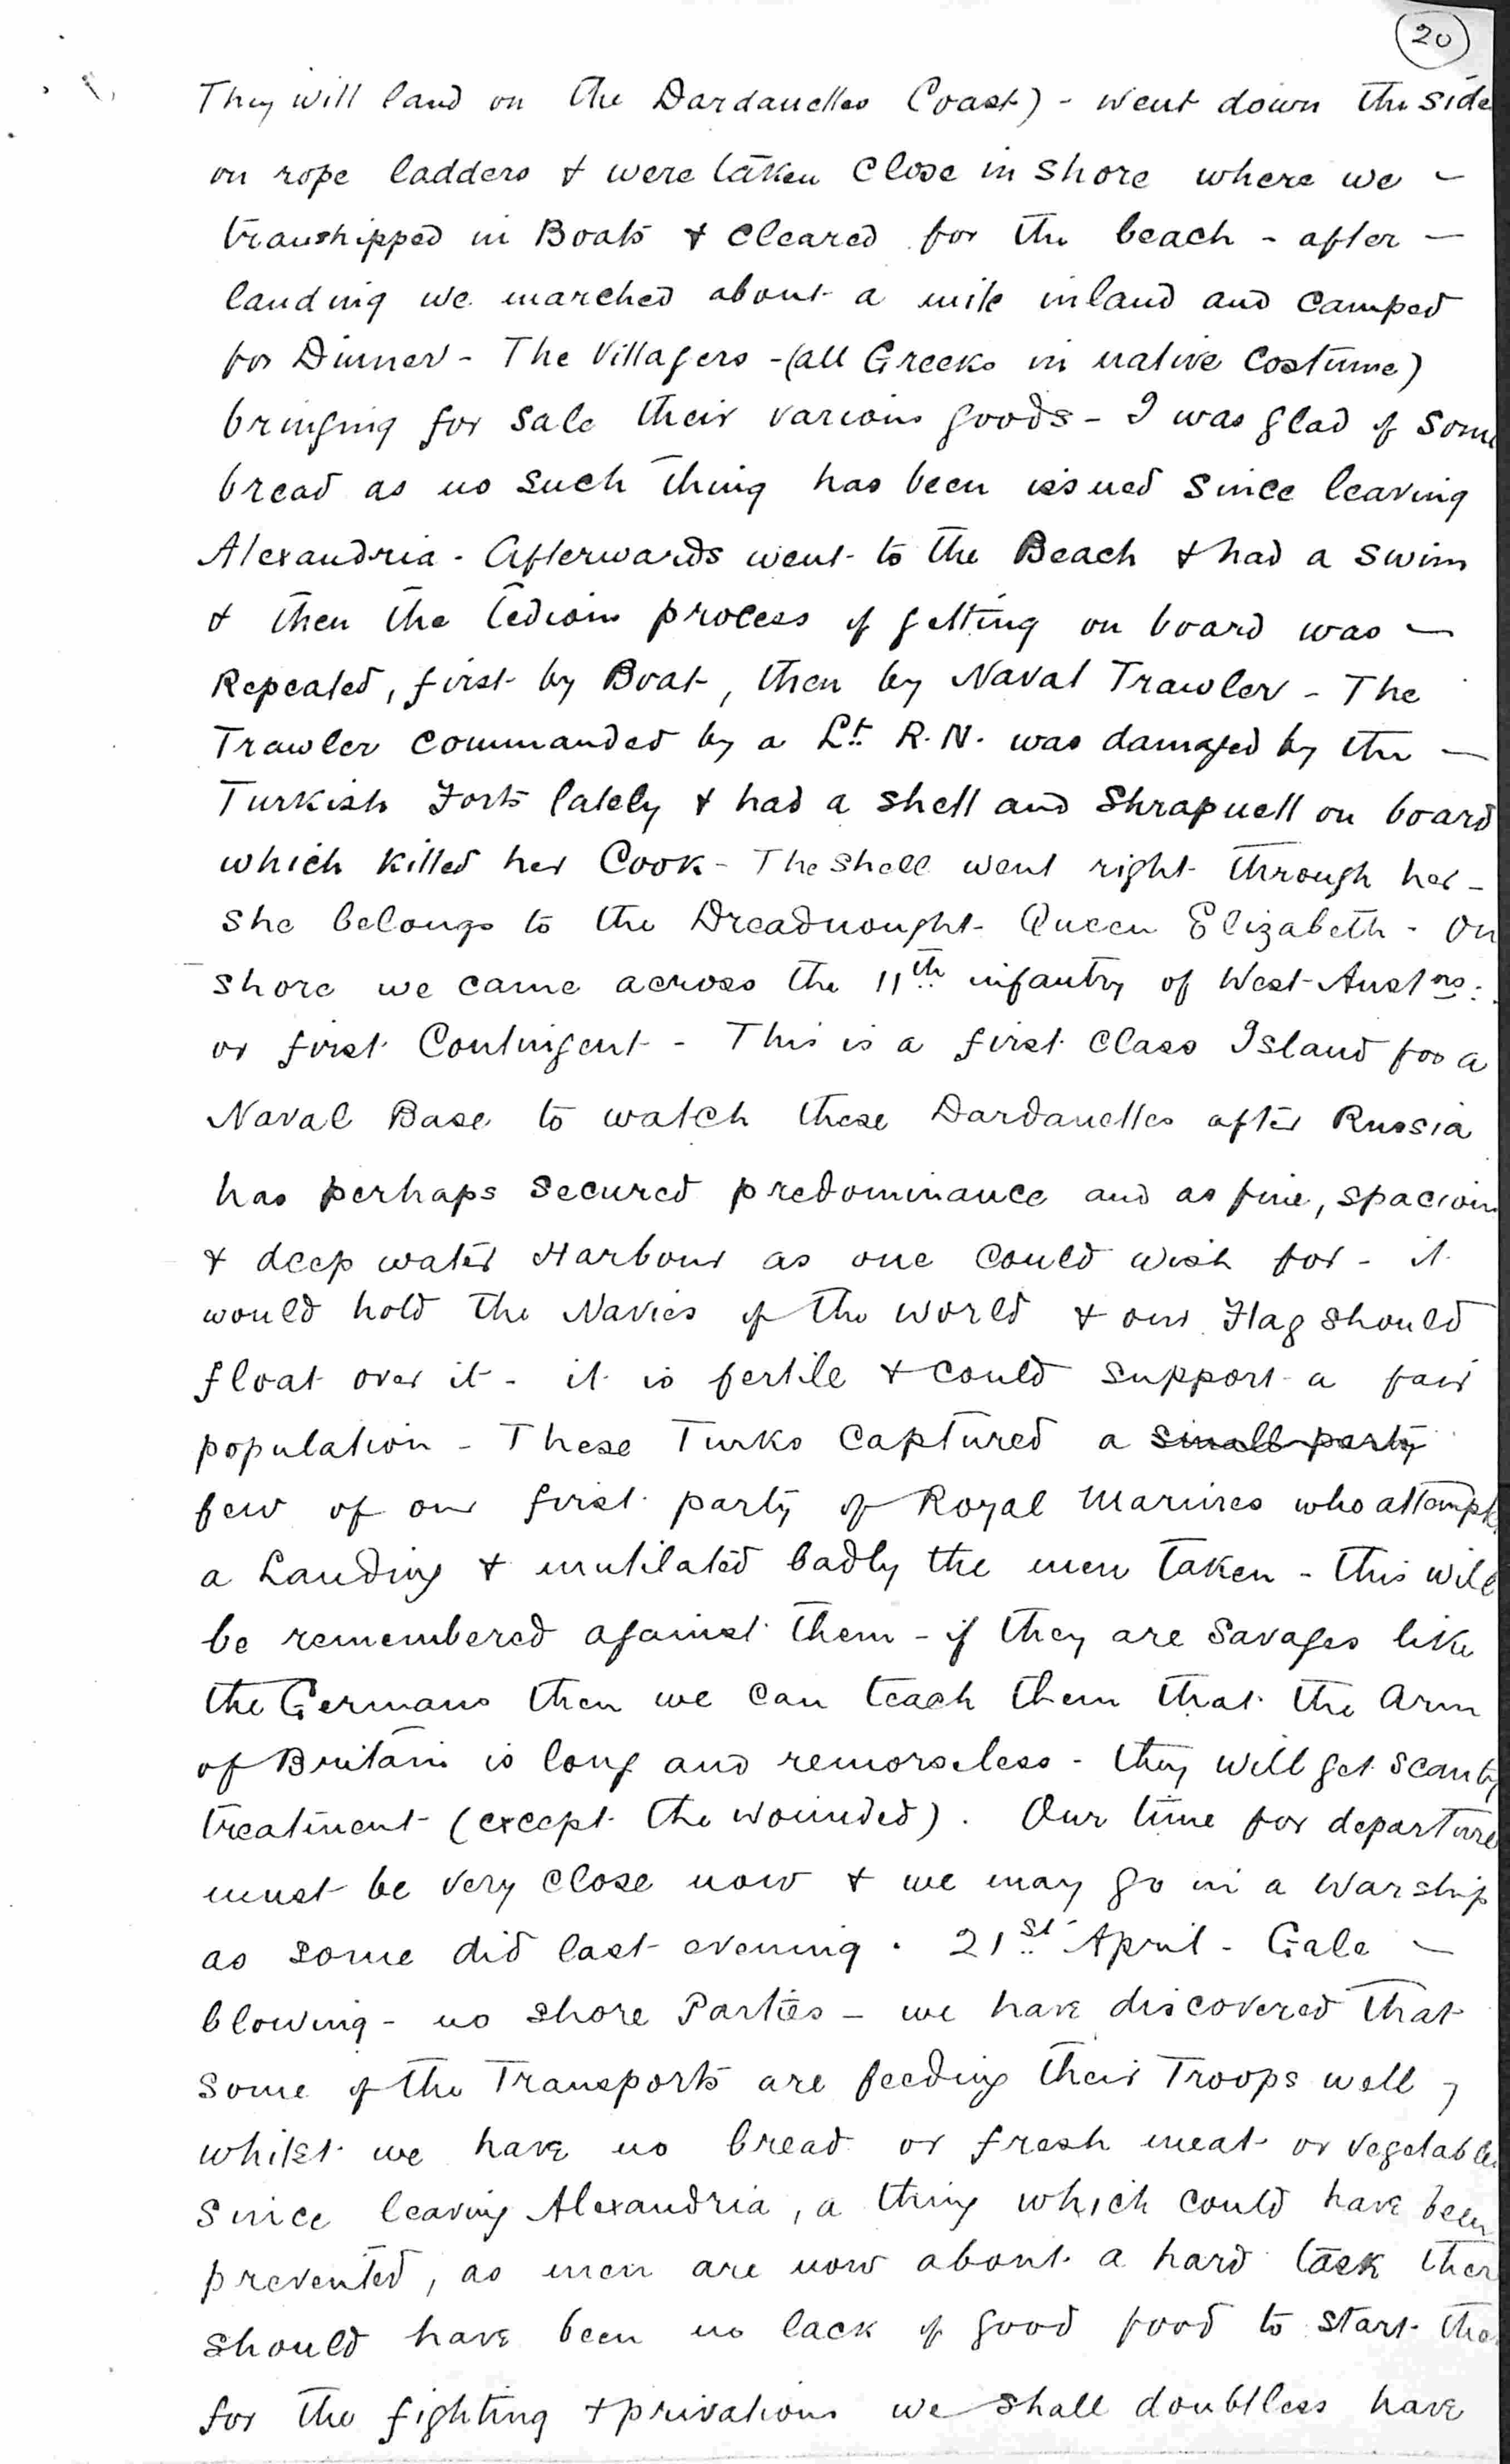 20
They will land on the Dardanelles Coast) - went down the side
on rope ladders & were taken close in shore where we -
transhipped in Boats & cleared for the beach - after -
landing we marched about a mile inland and camped
for Dinner - The Villagers - (all Greeks in native Costume)
bringing for sale their various goods - I was glad of some
bread as no such thing has been issued since leaving
Alexandria - Afterwards went to the Beach & had a swim
& then the tedious process of getting on board was -
Repeated, first by Boat, then by Naval Trawler - The
Trawler commanded by a Lt. R.N. was damaged by the -
Turkish Forts lately & had a shell and Shrapnell on board
which killed her Cook - The shell went right through her -
She belongs to the Dreadnought Queen Elizabeth - On
shore we came across the 11th infantry of West Austns:
or first Contingent - This is a first class Island for a
Naval Base to watch these Dardanelles after Russia
has perhaps secured predominance and as fine, spacious
& deep water Harbour as one could wish for - it
would hold the Navies of the world & our Flag should
float over it - it is fertile & could support a fair
population - These Turks captured a small party
few of our first party of Royal Marines who attempt
a Landing & mutilated badly the men taken - this will
be remembered against them - if they are savages like
the Germans then we can teach them that the arm
of Britain is long and remorseless - they will get scanty
treatment (except the wounded). Our time for departure
must be very close now & we may go in a Warship
as some did last evening. 21st April - Gale -
blowing - no shore Parties - we have discovered that
some of the Transports are feeding their Troops well,
whilst we have no bread or fresh meat or vegetables
since leaving Alexandria, a thing which could have been
prevented, as men are now about a hard task ther
should have been no lack of good food to start the
for the fighting & privations we shall doubtless have